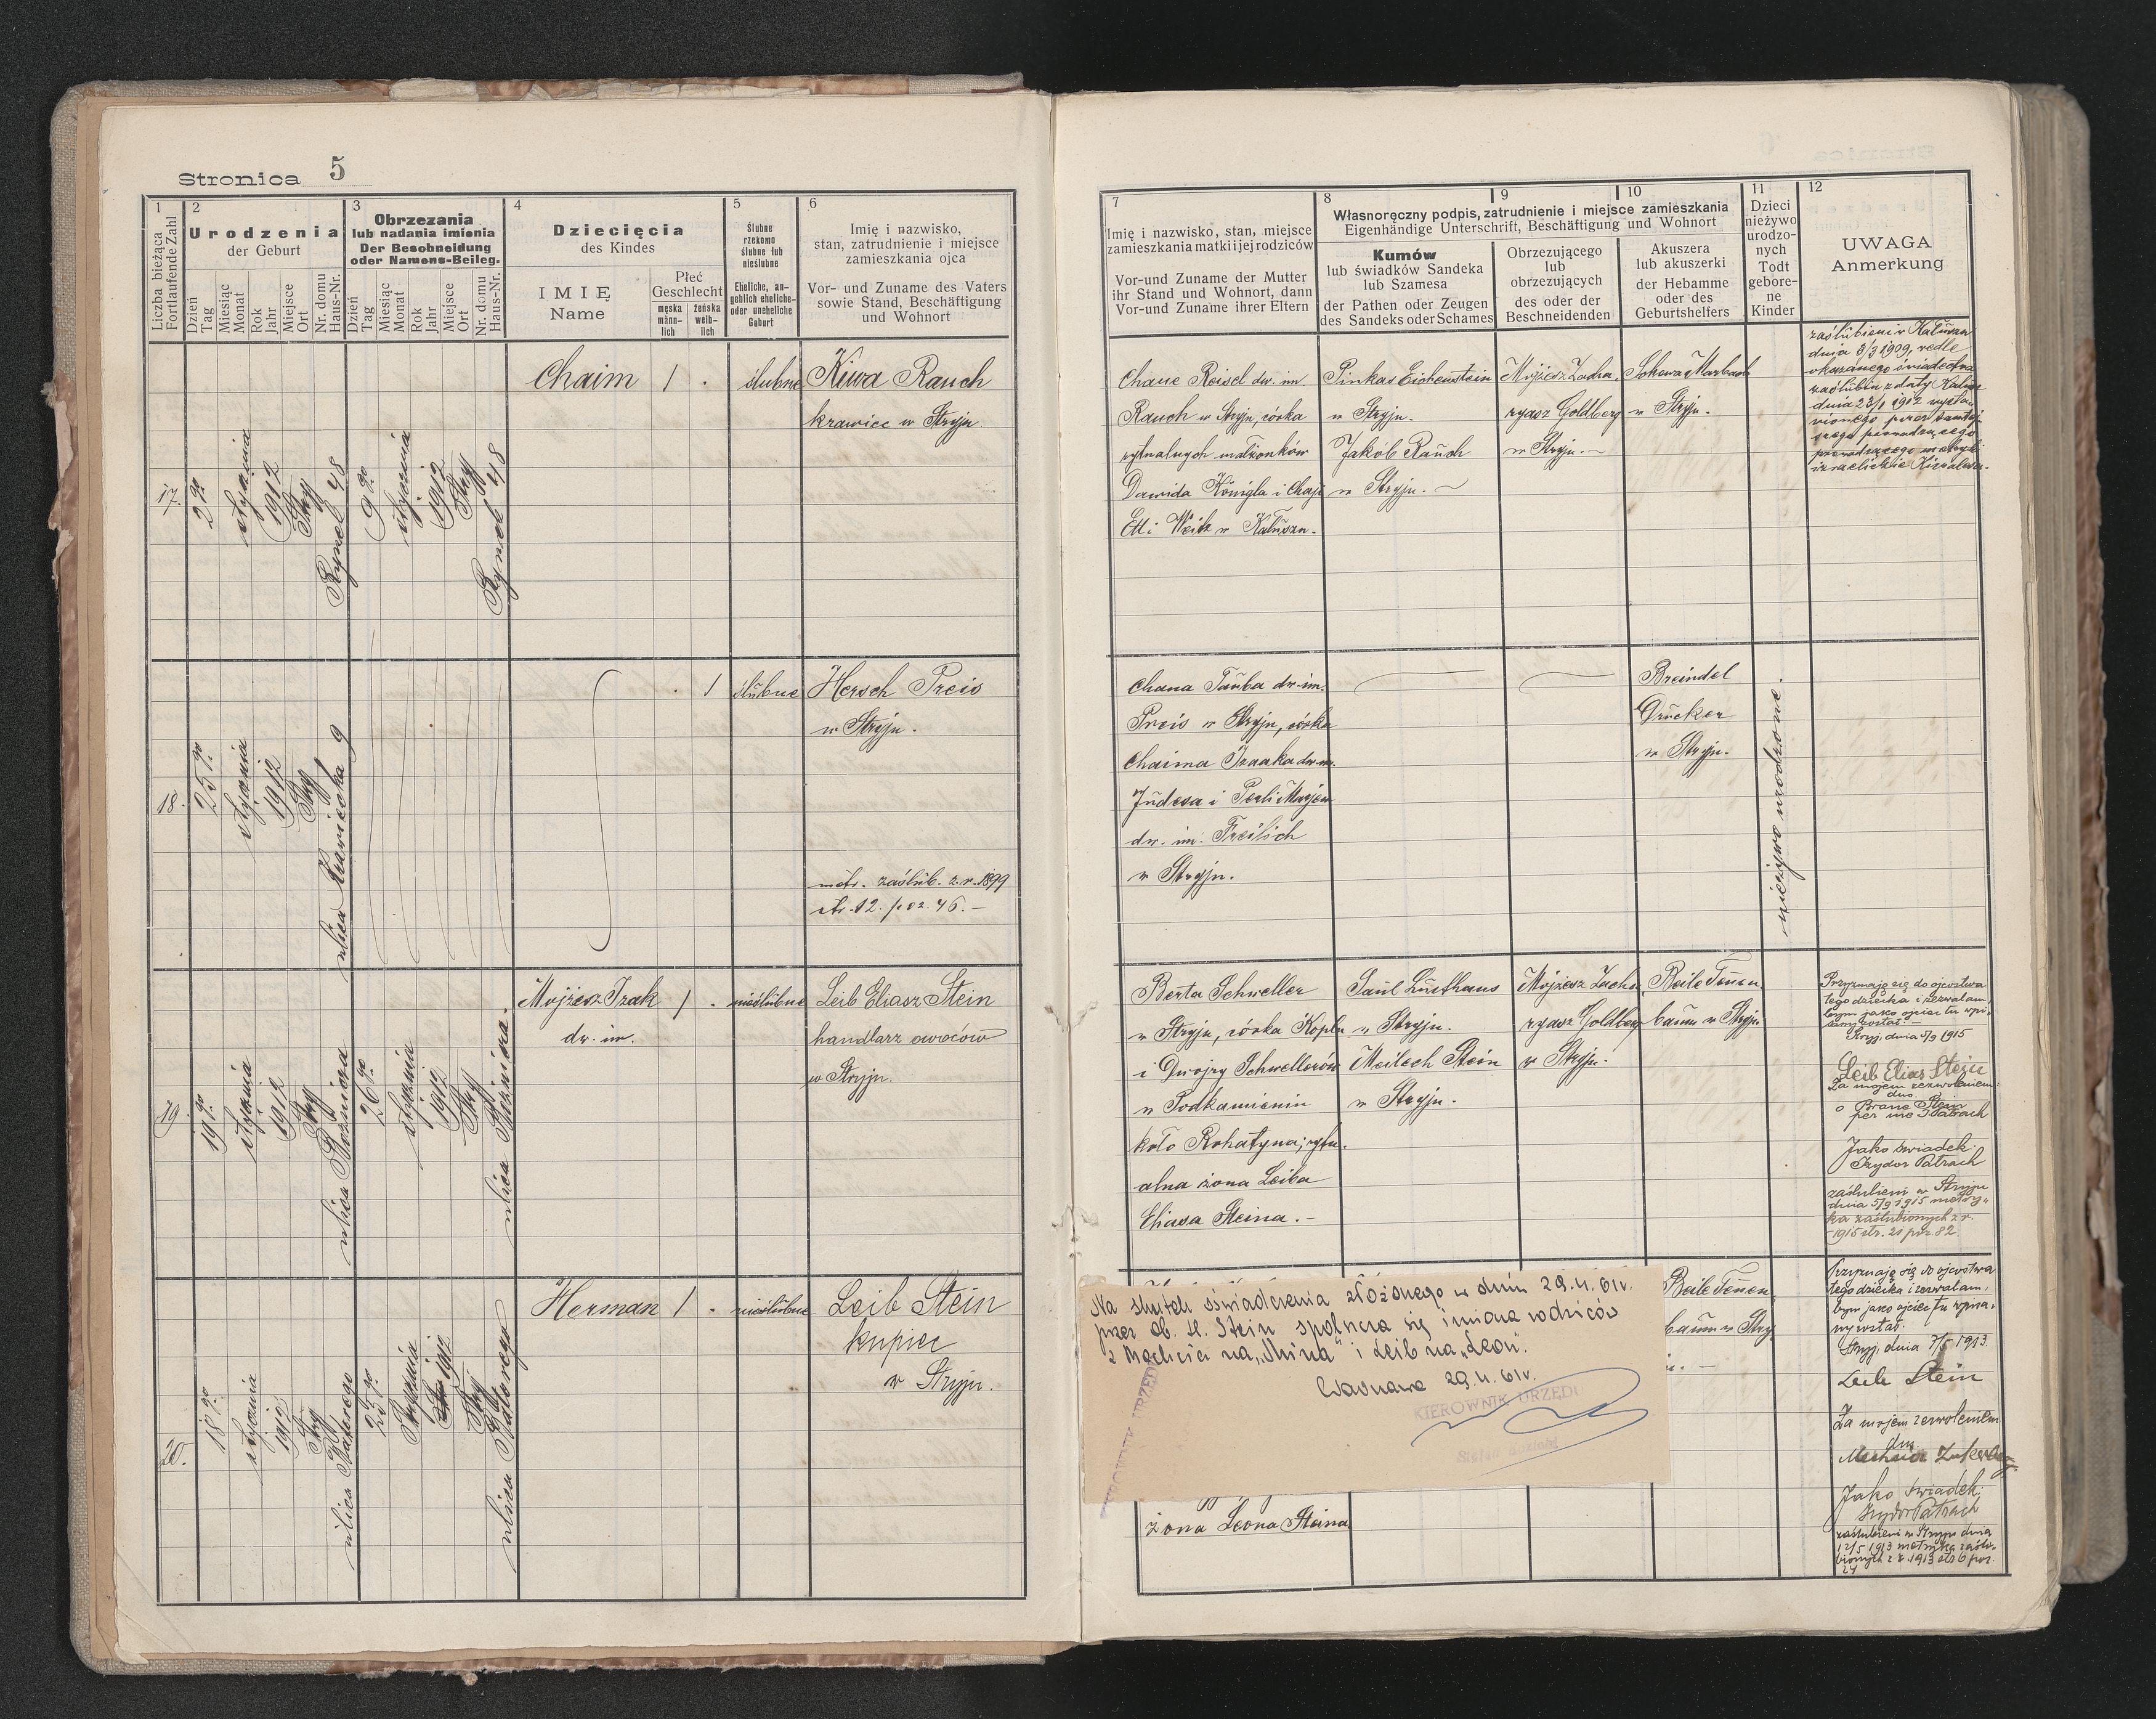 Stronica 5
1
Liczba bieżąca
Fortlaufende Zahl
2
Urodzenia
der Geburt
Dzień
Tag
Miesiąc
Monat
Rok
Jahr
Miejsce
Ort
Nr. domu
Haus-Nr.
3
Obrzezania
lub nadania imienia
Der Beschneidung
oder Namens-Beileg.
Dzień
Tag
Miesiąc
Monat
Rok
Jahr
Miejsce
Ort
Nr. domu
Haus-Nr.
4
Dziecięcia
des Kindes
IMIĘ
Name
Płeć
Geschlecht
męska
männ-
lich
żeńska
weib-
lich
5
Ślubne
rzekomo
ślubne lub
nieślubne
Eheliche, an-
geblich eheliche-
oder uneheliche
Geburt
6
Imię i nazwisko,
stan, zatrudnienie i miejsce
zamieszkania ojca
Vor- und Zuname des Vaters
sowie Stand, Beschäftigung
und Wohnort
7
Imię i nazwisko, stan, miejsce
zamieszkania matki i jej rodziców
Vor-und Zuname der Mutter
ihr Stand und Wohnort, dann
Vor-und Zuname ihrer Eltern
8
9
10
Własnoręczny podpis, zatrudnienie i miejsce zamieszkania
Eigenhändige Unterschrift, Beschäftigung und Wohnort
Kumów
lub świadków Sandeka
lub Szamesa
der Pathen oder Zeugen
des Sandeks oder Schames
Obrzezującego
lub
obrzezujących
des oder der
Beschneidenden
Akuszera
lub akuszerki
der Hebamme
oder des
Geburtshelfers
11
Dzieci
nieżywo
urodzo-
nych
Todt
gebore-
ne
Kinder
12
UWAGA
Anmerkung
17.
2go
stycznia
1912
Stryj
Rynek 48
9go
stycznia
1912
Stryj
Rynek 48
Chaim
1
.
ślubne
Kiwa Rauch
krawiec w Stryju
Chane Reisel dw. im.
Rauch w Stryju, córka
rytualnych małżonków
Dawida Königla i Chaji
Etti Weitz w Kałuszu.
Pinkas Eichenstein
w Stryju.
Jakób Rauch
w Stryju.
Mojżesz Zacha-
ryasz Goldberg
w Stryju.
Marbach
w Stryju.
zaślubieni w Kałuszu
dnia 3/3 1909, wedle
okazanego świadectwa
zaślubin z daty Kałusz
dnia 23/1 1912 wysta-
wionego przez
prowadzącego metryki
izraelickie
18.
25go
stycznia
1912
Stryj
ulica Krawiecka 9
.
1
ślubne
Hersch Preis
w Stryju.
metr. zaślub. z r. 1899
str. 12. poz. 46.
Chana Tauba dw. im.
Preis w Stryju, córka
Chaima Izaaka dw. im.
Judesa i Perli Marjem
dw. im. Freilich
w Stryju.
Breindel
Drucker
w Stryju.
nieżywo urodzone.
19.
19go
stycznia
1912
Stryj
ulica Bożnicza
26go
stycznia
1912
Stryj
ulica Bożnicza.
Mojżesz Izak
dw. im.
1
.
nieślubne
Leib Eliasz Stein
handlarz owoców
w Stryju.
Berta Schweller
w Stryju, córka Kopla
i Dwojry Schwellerów
w Podkamieniu
koło Rohatyna; rytu-
alna żona Leiba
Eliasa Steina.
Saul Lusthaus
w Stryju.
Meilech Stein
w Stryju.
Mojżesz Zacha-
ryasz Goldberg
w Stryju.
Beile Tenen
baum w Stryju
Przyznaję się do ojcostwa
tego dziecka i zezwalam,
bym jako ojciec tu wpi-
sany został.
Stryj, dnia 5/9 1915
Leib Elias Stein
Za mojem zezwoleniem:
dto.
o Brane Stein
per me I Patrach
Jako świadek
Izydor Patrach
zaślubieni w Stryju
dnia 5/9 1915 metry-
ka zaślubionych z r.
1915 str. 21 poz. 82.
20.
18go
stycznia
1912
Stryj
ulica Batorego
25go
stycznia
1912
Stryj
ulica Batorego
Herman
1
.
nieślubne
Leib Stein
kupiec
w Stryju.
Na skutek oświadczenia złożonego w dniu 29.11.61r.
przez ob. H. Stein spolszcza się imiona rodziców
z Machcia na „Mina” i Leib na „Leon”.
Warszawa 29.11.61r.
KIEROWNIK URZĘDU
KIEROWNIK URZĘDU
żona Leona Steina
Beile Tenen
baum w Stry
Przyznaję się do ojcostwa
tego dziecka i zezwalam,
bym jako ojciec tu wpisa-
ny został.
Stryj, dnia 7/5 1913.
Leib Stein
Za mojem zezwoleniem
dto
Jako świadek:
Izydor Patrach
zaślubieni w Stryju dnia
12/5 1913 metryka zaślu-
bionych z r. 1913 str 6 poz.
24